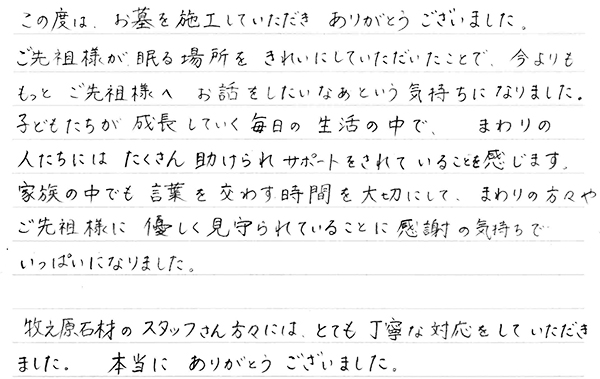 この度は、お墓を施工していただき ありがとうございました。
ご先祖様が眠る場所を きれいにしていただいたことで、今よりも
もっと ご先祖様へ お話をしたいなあという気持ちになりました。
子どもたちが 成長していく毎日の 生活の中で、 まわりの
人たちには たくさん 助けられ サポートをされていることを感じます。
家族の中でも 言葉を 交わす時間を大切にして、まわりの方々や
ご先祖様に 優しく見守られていることに 感謝の気持ちで
いっぱいになりました。
牧之原石材の スタッフさん方々には、とても 丁寧な対応をしていただき
ました。 本当に ありがとう ございました。